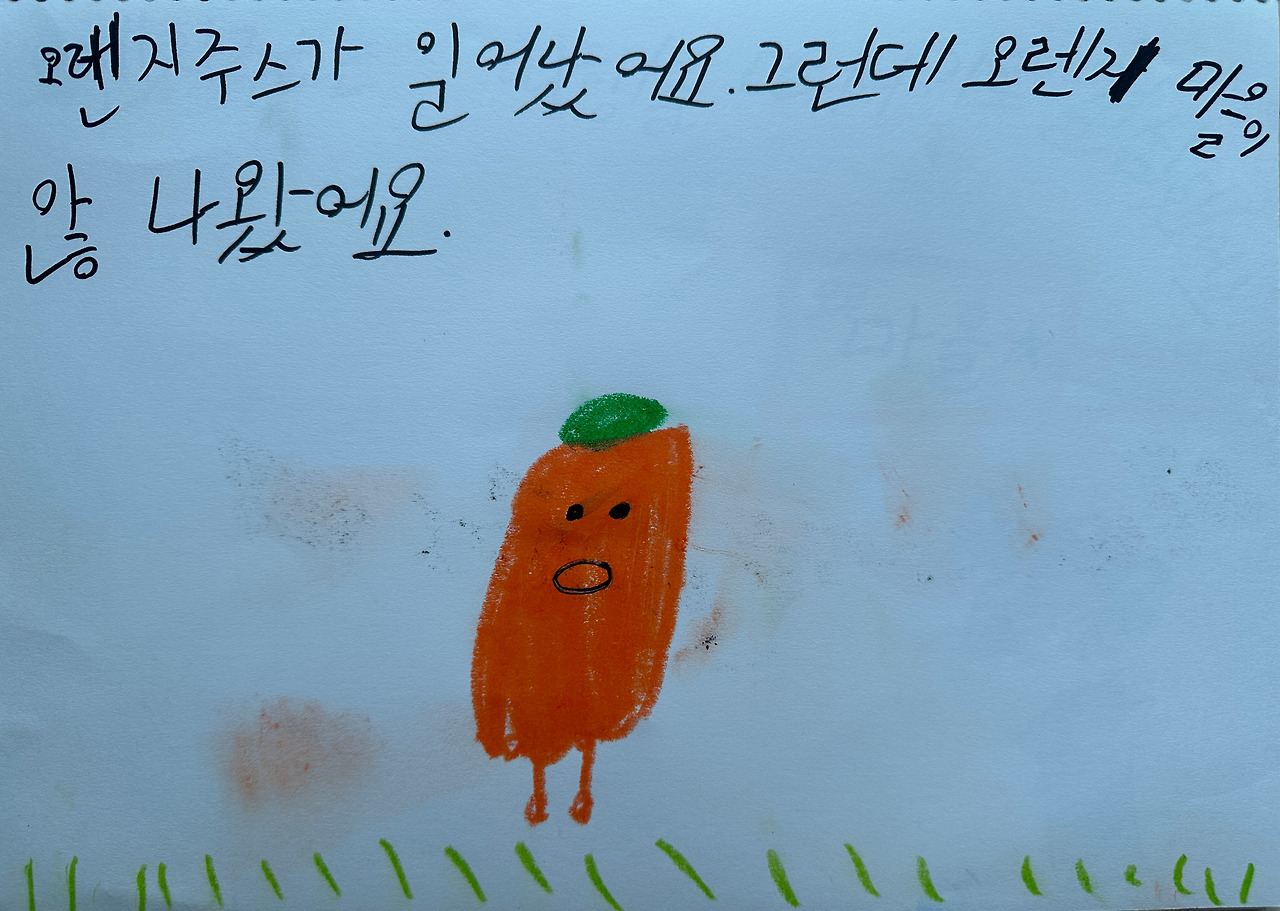 오렌지주스가 일어났어요.그런데 오렌지 마을이
안 나왔어요.